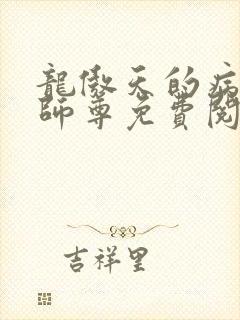 龍傲天的病
師尊免費閱
吉祥里